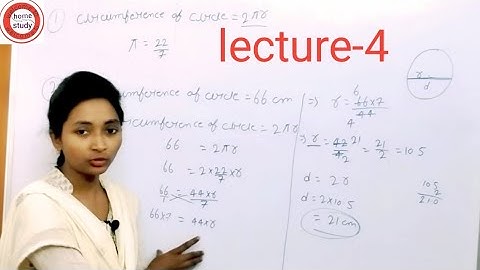 home study
lecture-4
① circumference of circle = 2πr
π = 22/7
circumference of circle = 66 cm
circumference of circle = 2πr
66 = 2πr
66 = 2×22/7×r
66/1 = 44×r/7
66×7 = 44×r
⇒ r = 66×7/44
6
4
⇒ r = 42/4 = 21/2 = 10.5
21
2
d = 2r
d = 2×10.5
= 21 cm
10.5
2
21.0
r
d